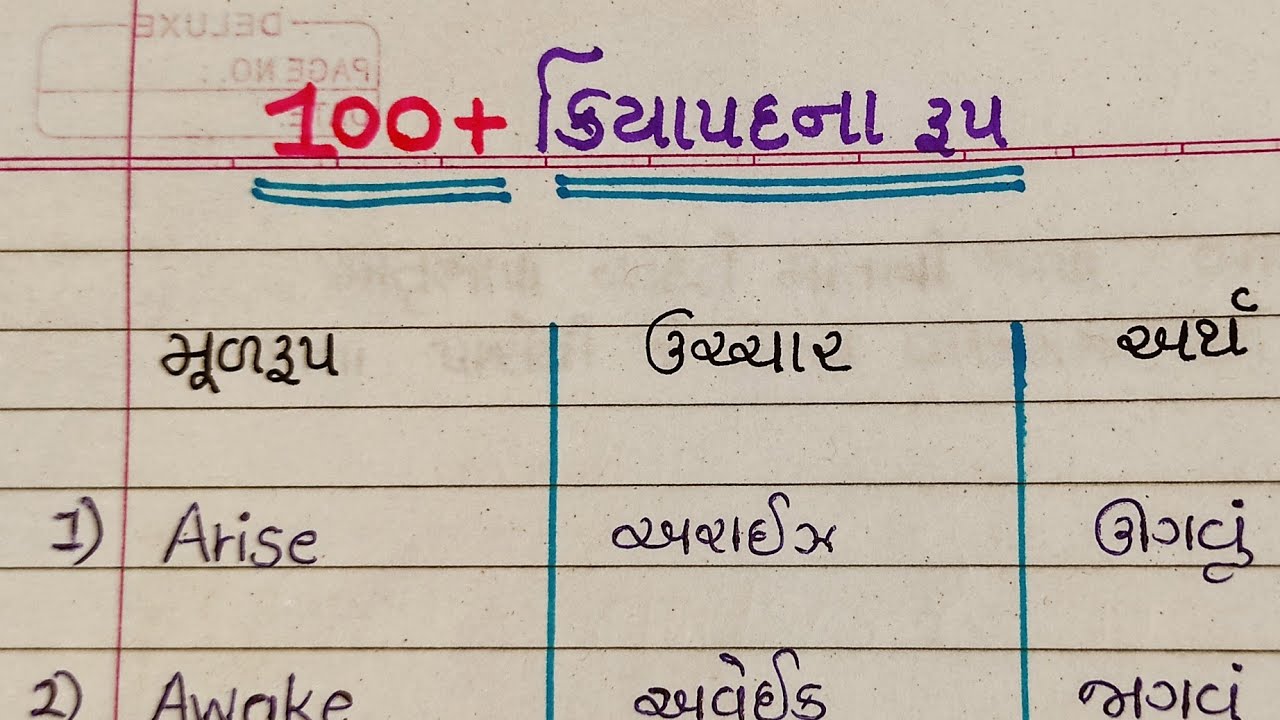 DELUXE
PAGE NO.:
100+ ક્રિયાપદના રૂપ
મૂળરૂપ ઉચ્ચાર અર્થ
1) Arise અરાઈઝ ઊગવું
2) Awake અવેઈક જાગવું